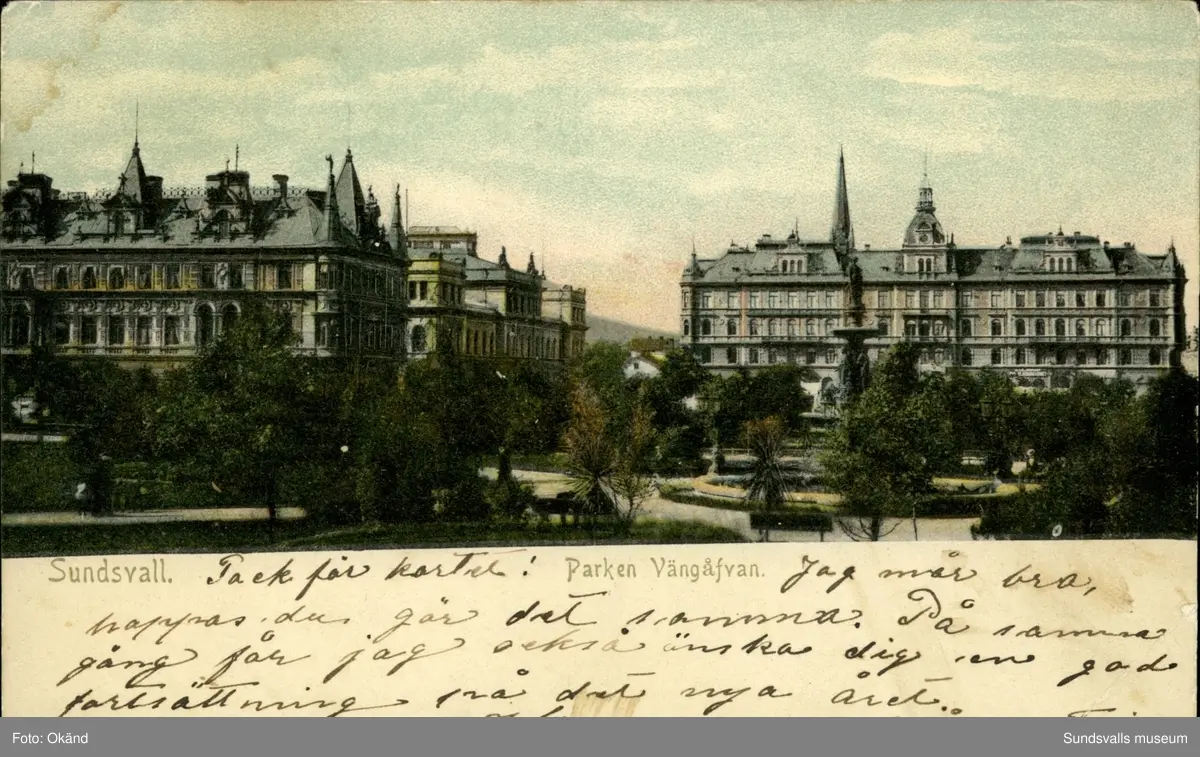 Sundsvall. Tack för kortet! Parken Vängåfvan. Jag mår bra,
hoppas du gör det samma. På samma
gång får jag också önska dig en god
fortsättning på det nya året.
Foto: Okänd
Sundsvalls museum